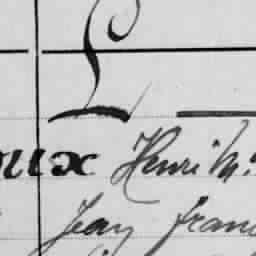 L
oux Henri M.
Jean Fran